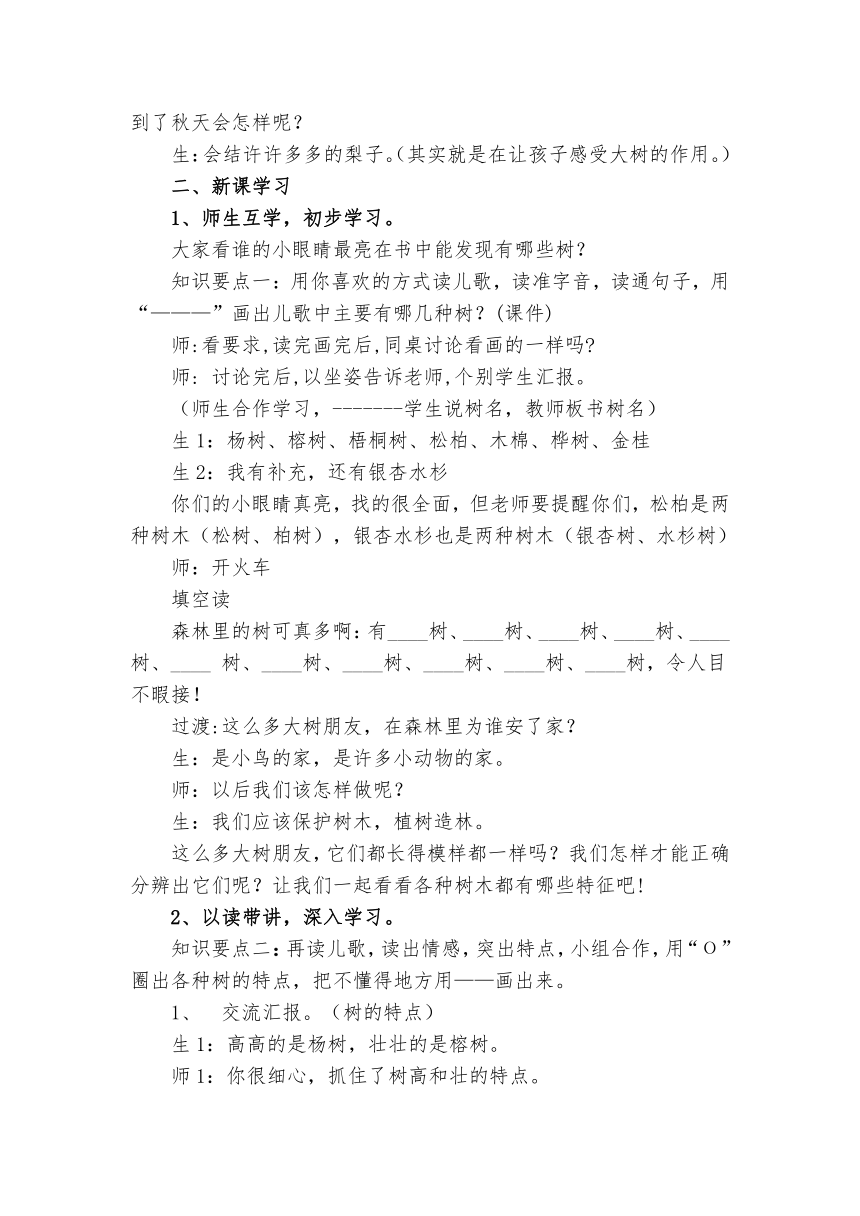 到了秋天会怎样呢？
生:会结许许多多的梨子。（其实就是在让孩子感受大树的作用。）
二、新课学习
1、师生互学，初步学习。
大家看谁的小眼睛最亮在书中能发现有哪些树？
知识要点一：用你喜欢的方式读儿歌，读准字音，读通句子，用
“———”画出儿歌中主要有哪几种树？(课件)
师:看要求,读完画完后,同桌讨论看画的一样吗?
师: 讨论完后,以坐姿告诉老师,个别学生汇报。
（师生合作学习，-------学生说树名，教师板书树名）
生1：杨树、榕树、梧桐树、松柏、木棉、桦树、金桂
生2：我有补充，还有银杏水杉
你们的小眼睛真亮，找的很全面，但老师要提醒你们，松柏是两
种树木（松树、柏树），银杏水杉也是两种树木（银杏树、水杉树）
师：开火车
填空读
森林里的树可真多啊：有____树、____树、____树、____树、____
树、____ 树、____树、____树、____树、____树、____树，令人目
不暇接！
过渡:这么多大树朋友，在森林里为谁安了家？
生：是小鸟的家，是许多小动物的家。
师：以后我们该怎样做呢？
生：我们应该保护树木，植树造林。
这么多大树朋友，它们都长得模样都一样吗？我们怎样才能正确
分辨出它们呢？让我们一起看看各种树木都有哪些特征吧！
2、以读带讲，深入学习。
知识要点二：再读儿歌，读出情感，突出特点，小组合作，用“O”
圈出各种树的特点，把不懂得地方用——画出来。
1、 交流汇报。（树的特点）
生1：高高的是杨树，壮壮的是榕树。
师1：你很细心，抓住了树高和壮的特点。